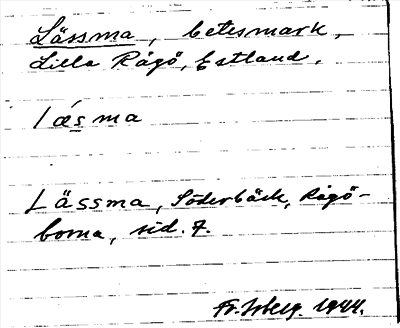 Lässma, betesmark,
Lilla Rågö, Estland.
lǽsma
Lässma, Söderbäck, Rågö-
borna, sid. 7.
1944.